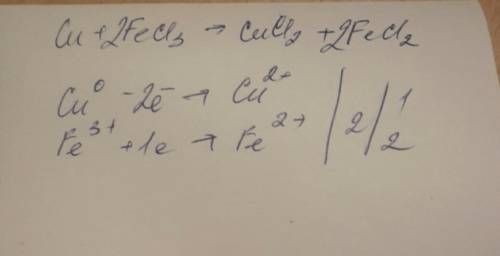 Cu + 2FeCl₃ → CuCl₂ + 2FeCl₂
Cu⁰ - 2e⁻ → Cu²⁺ | 2 | 1
Fe³⁺ + 1e → Fe²⁺ | 2